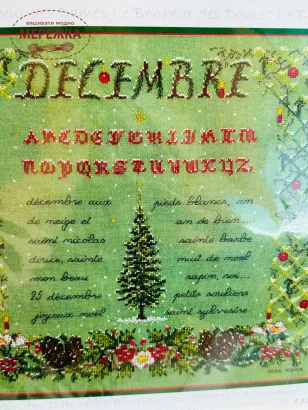 Le Bonheur des Dames Le Bonheur des Dames Le B
вишивати модно
МЕРЕЖКА
DECEMBRE
ABCDEFGHIJKLM
NOPQRSTUVWXYZ
décembre aux pieds blancs, an
de neige et an de bien...
saint nicolas sainte barbe
douce, sainte nuit de noël
mon beau sapin, ros...
25 décembre petits souliers
joyeux noël saint sylvestre